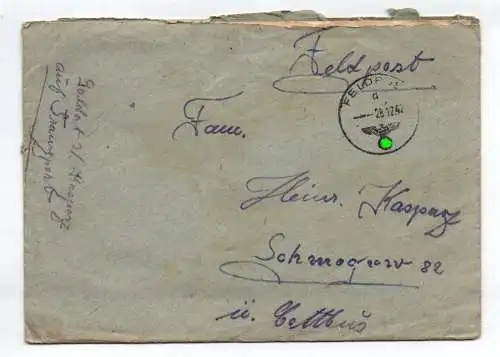 Feldpost
FELDP
a
28.12.42
Fam.
Heinr. Kasparz
Schmogrow 82
ü. Cottbus
Soldat H. Kasparz
auf Transport